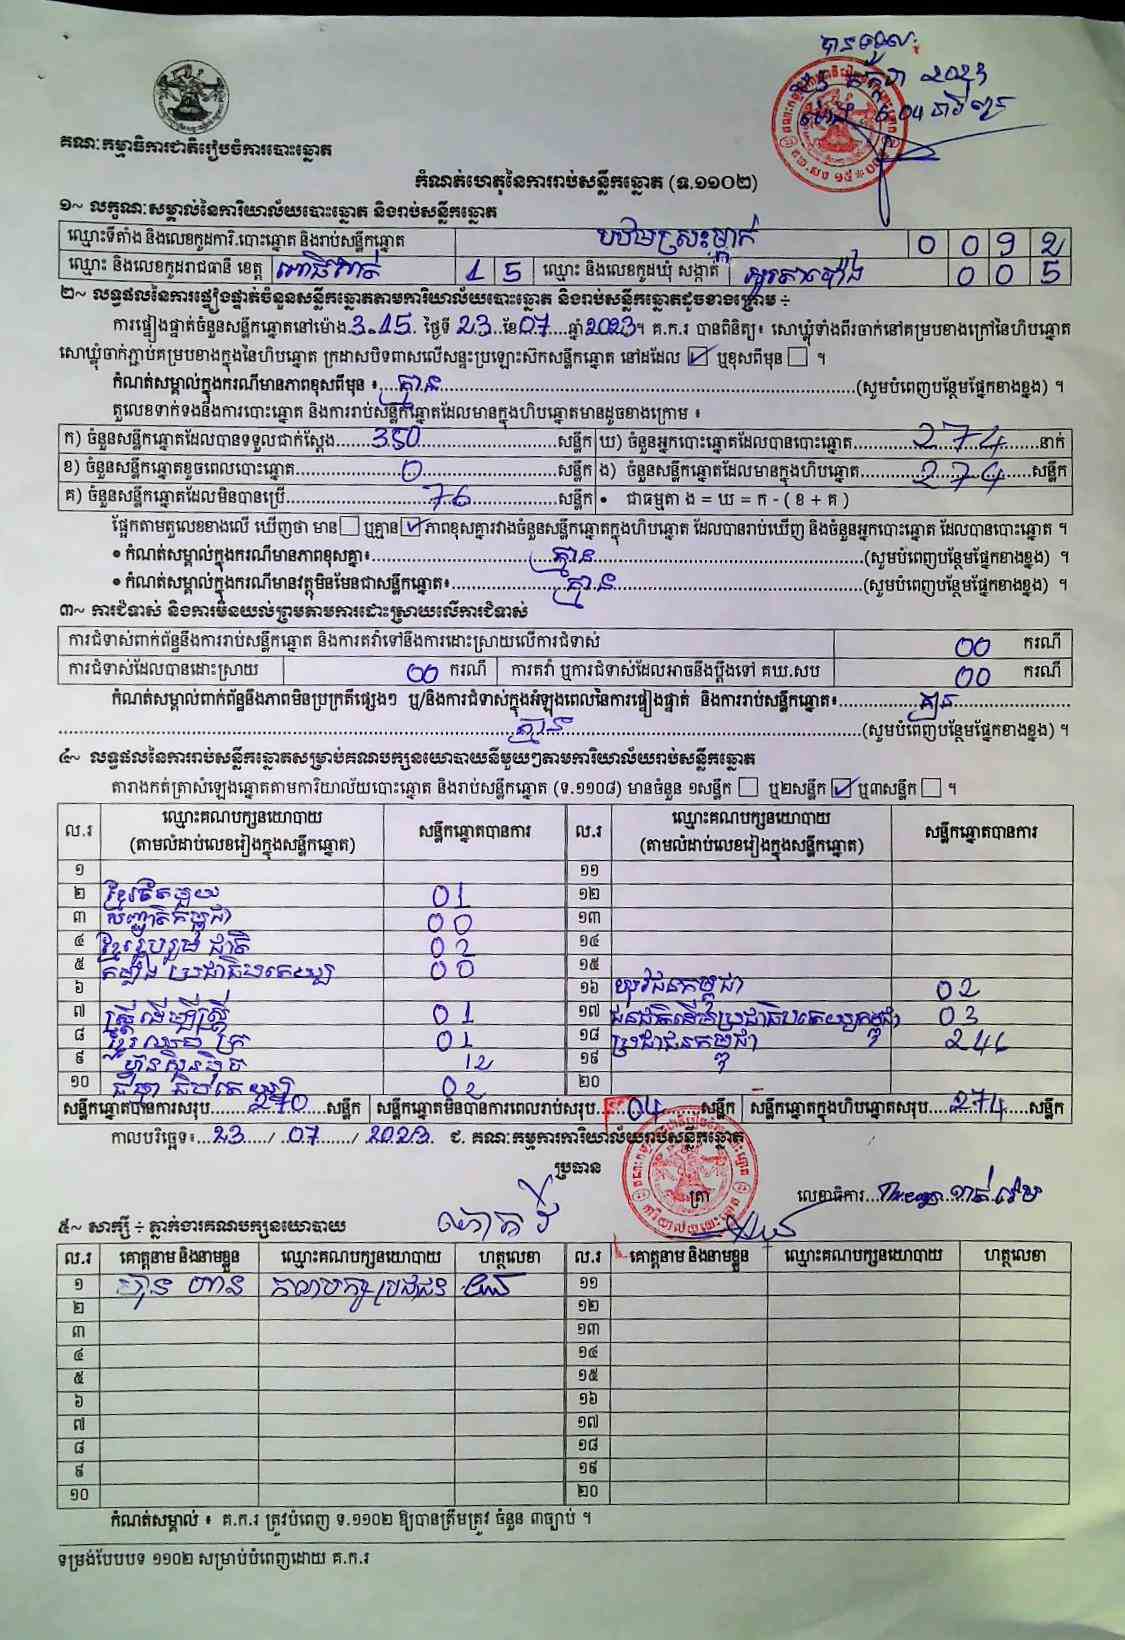 បានទទួល
23 កក្កដា ២០២៣
ម៉ោង ៤:04 នាទី
គណៈកម្មាធិការជាតិរៀបចំការបោះឆ្នោត
កំណត់ហេតុនៃការរាប់សន្លឹកឆ្នោត (ទ.១១០២)
១~ លក្ខណៈសម្គាល់នៃការិយាល័យបោះឆ្នោត និងរាប់សន្លឹកឆ្នោត
ឈ្មោះទីតាំង និងលេខកូដការិ.បោះឆ្នោត និងរាប់សន្លឹកឆ្នោត បឋមស្រះម្កាក់ 0 0 9 2
ឈ្មោះ និងលេខកូដរាជធានី ខេត្ត ពោធិ៍សាត់ 1 5 ឈ្មោះ និងលេខកូដឃុំ សង្កាត់ 0 0 5
២~ លទ្ធផលនៃការផ្ទៀងផ្ទាត់ចំនួនសន្លឹកឆ្នោតតាមការិយាល័យបោះឆ្នោត និងរាប់សន្លឹកឆ្នោតដូចខាងក្រោម ÷
ការផ្ទៀងផ្ទាត់ចំនួនសន្លឹកឆ្នោតនៅម៉ោង 3:15 ថ្ងៃទី 23 ខែ 07 ឆ្នាំ 2023។ គ.ក.រ បានពិនិត្យ៖ សោឃ្លុំទាំងពីរចាក់នៅគម្របខាងក្រៅនៃហិបឆ្នោត
សោឃ្លុំចាក់ភ្ជាប់គម្របខាងក្នុងនៃហិបឆ្នោត ក្រដាសបិទពាសលើសន្ទះប្រឡោះស៊កសន្លឹកឆ្នោត នៅដដែល ☑ ឬខុសពីមុន ☐ ។
កំណត់សម្គាល់ក្នុងករណីមានភាពខុសពីមុន ៖ គ្មាន (សូមបំពេញបន្ថែមផ្នែកខាងខ្នង) ។
តួលេខទាក់ទងនឹងការបោះឆ្នោត និងការរាប់សន្លឹកឆ្នោតដែលមានក្នុងហិបឆ្នោតមានដូចខាងក្រោម ៖
ក) ចំនួនសន្លឹកឆ្នោតដែលបានទទួលជាក់ស្តែង 350 សន្លឹក ឃ) ចំនួនអ្នកបោះឆ្នោតដែលបានបោះឆ្នោត 274 នាក់
ខ) ចំនួនសន្លឹកឆ្នោតខូចពេលបោះឆ្នោត 0 សន្លឹក ង) ចំនួនសន្លឹកឆ្នោតដែលមានក្នុងហិបឆ្នោត 274 សន្លឹក
គ) ចំនួនសន្លឹកឆ្នោតដែលមិនបានប្រើ 76 សន្លឹក • ជាធម្មតា ង = ឃ = ក - ( ខ + គ )
ផ្អែកតាមតួលេខខាងលើ ឃើញថា មាន ☐ ឬគ្មាន ☑ ភាពខុសគ្នារវាងចំនួនសន្លឹកឆ្នោតក្នុងហិបឆ្នោត ដែលបានរាប់ឃើញ និងចំនួនអ្នកបោះឆ្នោត ដែលបានបោះឆ្នោត ។
• កំណត់សម្គាល់ក្នុងករណីមានភាពខុសគ្នា៖ គ្មាន (សូមបំពេញបន្ថែមផ្នែកខាងខ្នង) ។
• កំណត់សម្គាល់ក្នុងករណីមានវត្ថុមិនមែនជាសន្លឹកឆ្នោត៖ គ្មាន (សូមបំពេញបន្ថែមផ្នែកខាងខ្នង) ។
៣~ ការជំទាស់ និងការមិនយល់ព្រមតាមការដោះស្រាយលើការជំទាស់
ការជំទាស់ពាក់ព័ន្ធនឹងការរាប់សន្លឹកឆ្នោត និងការតវ៉ាទៅនឹងការដោះស្រាយលើការជំទាស់ 00 ករណី
ការជំទាស់ដែលបានដោះស្រាយ 00 ករណី ការតវ៉ា ឬការជំទាស់ដែលអាចនឹងប្តឹងទៅ គឃ.សប 00 ករណី
កំណត់សម្គាល់ពាក់ព័ន្ធនឹងភាពមិនប្រក្រតីផ្សេងៗ ឬ/និងការជំទាស់ក្នុងអំឡុងពេលនៃការផ្ទៀងផ្ទាត់ និងការរាប់សន្លឹកឆ្នោត៖ គ្មាន
គ្មាន (សូមបំពេញបន្ថែមផ្នែកខាងខ្នង) ។
៤~ លទ្ធផលនៃការរាប់សន្លឹកឆ្នោតសម្រាប់គណបក្សនយោបាយនីមួយៗតាមការិយាល័យរាប់សន្លឹកឆ្នោត
តារាងកត់ត្រាសំឡេងឆ្នោតតាមការិយាល័យបោះឆ្នោត និងរាប់សន្លឹកឆ្នោត (ទ.១១០៨) មានចំនួន ១សន្លឹក ☐ ឬ២សន្លឹក ☑ ឬ៣សន្លឹក ☐ ។
ល.រ ឈ្មោះគណបក្សនយោបាយ (តាមលំដាប់លេខរៀងក្នុងសន្លឹកឆ្នោត) សន្លឹកឆ្នោតបានការ ល.រ ឈ្មោះគណបក្សនយោបាយ (តាមលំដាប់លេខរៀងក្នុងសន្លឹកឆ្នោត) សន្លឹកឆ្នោតបានការ
១ ១១
២ ខ្មែរតែមួយ 01 ១២
៣ សញ្ជាតិកម្ពុជា 00 ១៣
៤ ខ្មែររួបរួមជាតិ 02 ១៤
៥ សំបុកឃ្មុំ ប្រជាធិបតេយ្យ 00 ១៥
៦ ១៦ យុវជនកម្ពុជា 02
៧ ស្ត្រីដើម្បីស្ត្រី 01 ១៧ ជនជាតិដើមប្រជាធិបតេយ្យកម្ពុជា 03
៨ ខ្មែរឈប់ក្រ 01 ១៨ ប្រជាជនកម្ពុជា 246
៩ ហ៊្វុនស៊ិនប៉ិច 12 ១៩
១០ ធម្មាធិបតេយ្យ 02 ២០
សន្លឹកឆ្នោតបានការសរុប 270 សន្លឹក សន្លឹកឆ្នោតមិនបានការពេលរាប់សរុប 04 សន្លឹក សន្លឹកឆ្នោតក្នុងហិបឆ្នោតសរុប 274 សន្លឹក
កាលបរិច្ឆេទ៖ 23 / 07 / 2023 ជ. គណៈកម្មការការិយាល័យរាប់សន្លឹកឆ្នោត
ប្រធាន
ត្រា លេខាធិការ
៥~ សាក្សី ÷ ភ្នាក់ងារគណបក្សនយោបាយ
ល.រ គោត្តនាម និងនាមខ្លួន ឈ្មោះគណបក្សនយោបាយ ហត្ថលេខា ល.រ គោត្តនាម និងនាមខ្លួន ឈ្មោះគណបក្សនយោបាយ ហត្ថលេខា
១ គណបក្សប្រជាជន ១១
២ ១២
៣ ១៣
៤ ១៤
៥ ១៥
៦ ១៦
៧ ១៧
៨ ១៨
៩ ១៩
១០ ២០
កំណត់សម្គាល់ ៖ គ.ក.រ ត្រូវបំពេញ ទ.១១០២ ឱ្យបានត្រឹមត្រូវ ចំនួន ៣ច្បាប់ ។
ទម្រង់បែបបទ ១១០២ សម្រាប់បំពេញដោយ គ.ក.រ